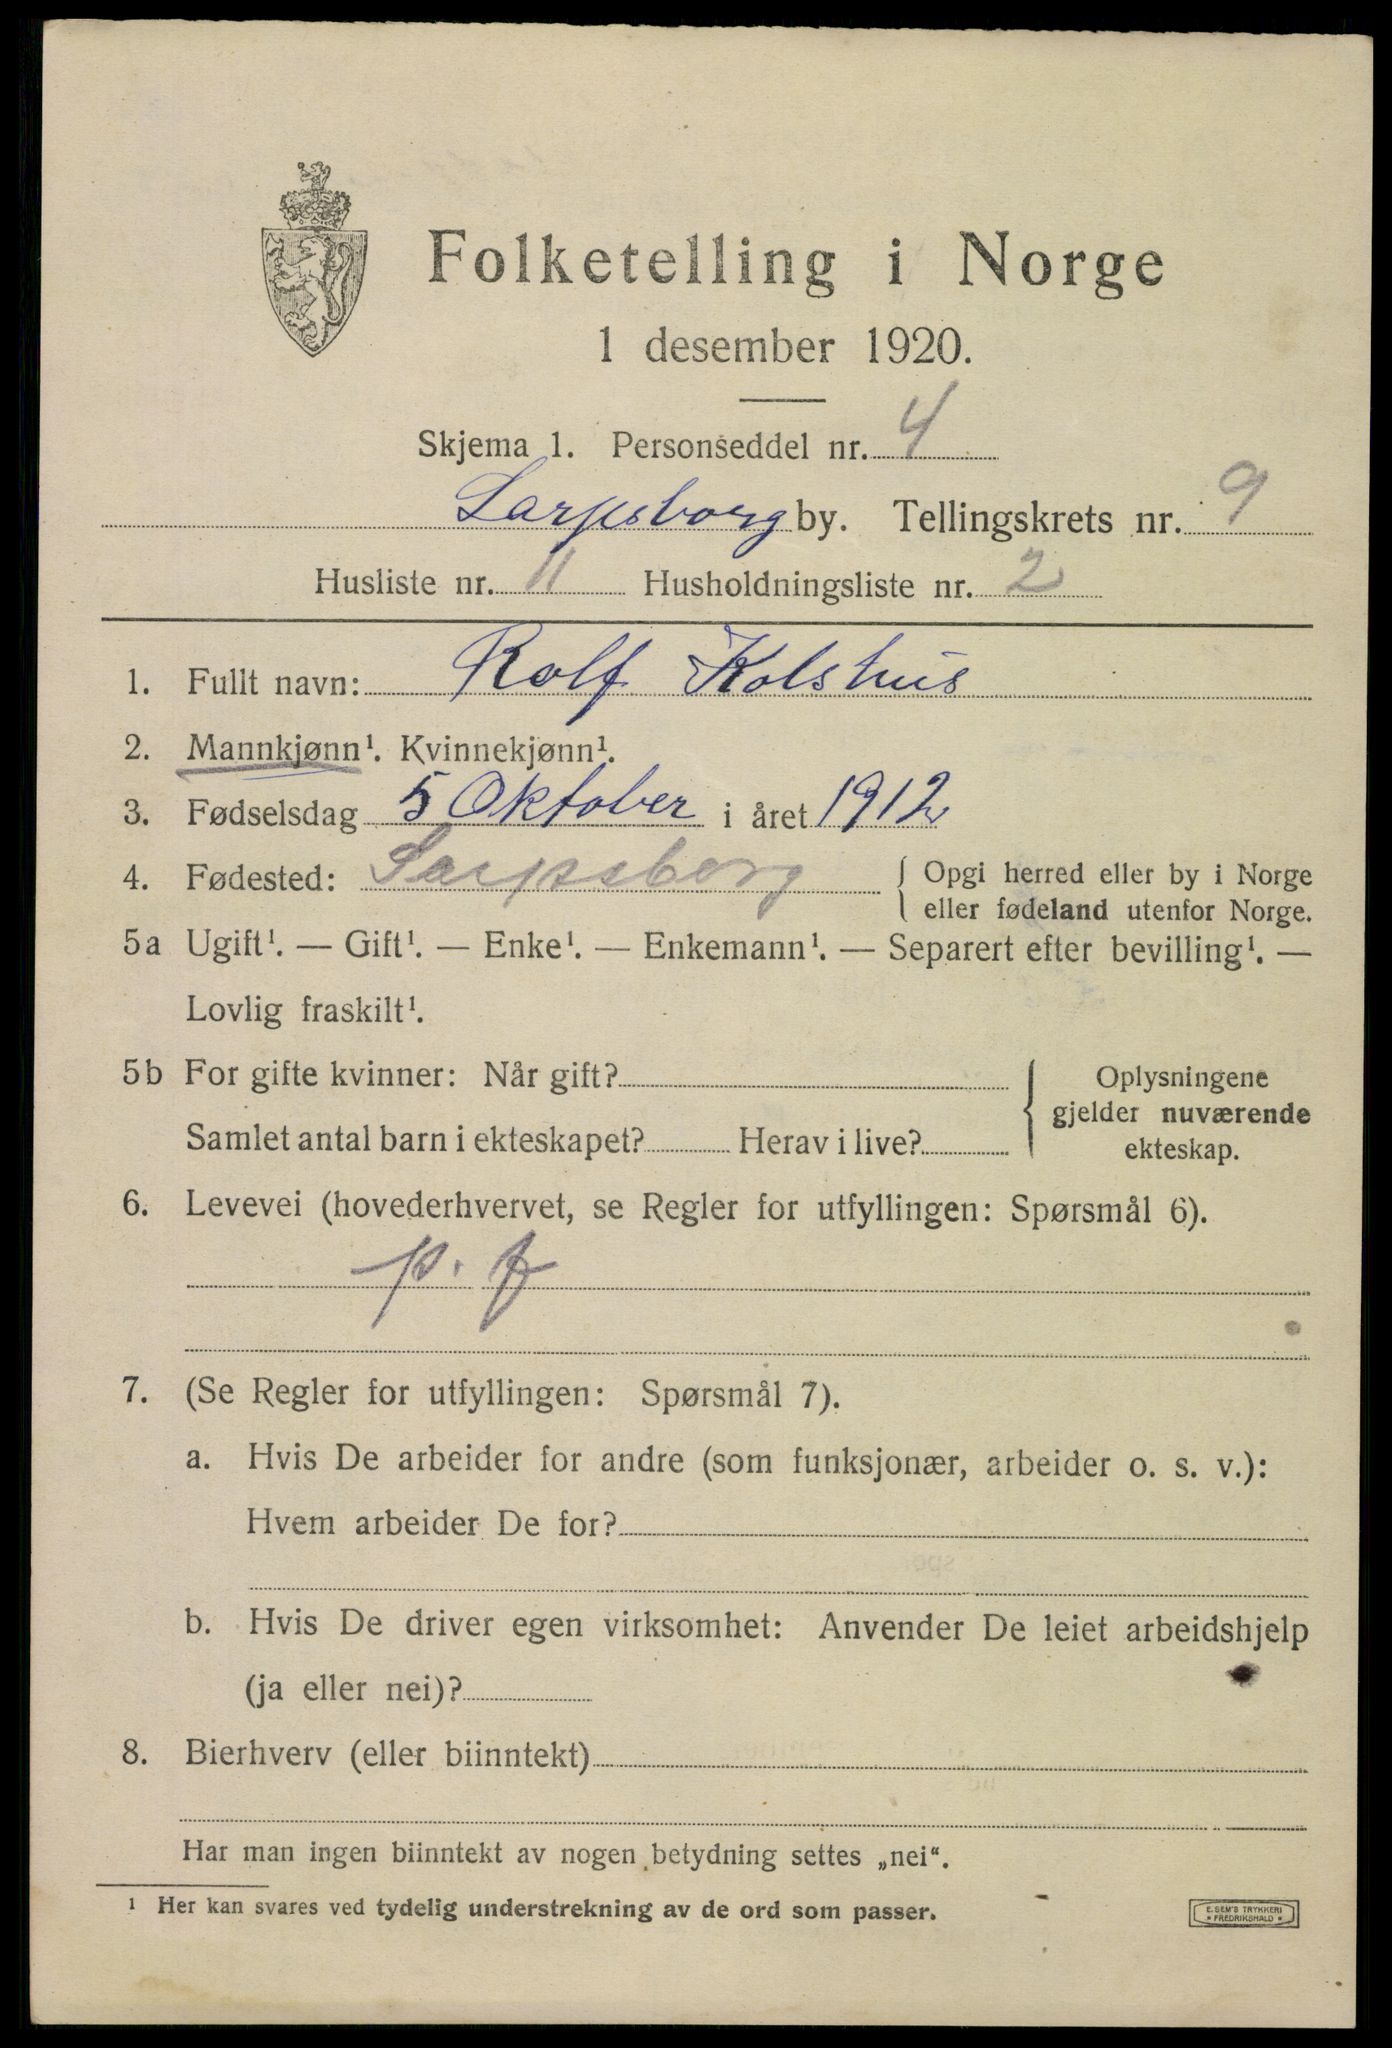 Folketelling i Norge
1 desember 1920.
Skjema 1. Personseddel nr. 4
Sarpsborg by. Tellingskrets nr. 9
Husliste nr. 11 Husholdningsliste nr. 2
1. Fullt navn: Rolf Kolshus
2. Mannkjønn¹. Kvinnekjønn¹.
3. Fødselsdag 5 Oktober i året 1912
4. Fødested: Sarpsborg { Opgi herred eller by i Norge
eller fødeland utenfor Norge.
5a Ugift¹. — Gift¹. — Enke¹. — Enkemann¹. — Separert efter bevilling¹. —
Lovlig fraskilt¹.
5b For gifte kvinner: Når gift? { Oplysningene
gjelder nuværende
Samlet antal barn i ekteskapet? Herav i live? ekteskap.
6. Levevei (hovederhvervet, se Regler for utfyllingen: Spørsmål 6).
p. f
7. (Se Regler for utfyllingen: Spørsmål 7).
a. Hvis De arbeider for andre (som funksjonær, arbeider o. s. v.):
Hvem arbeider De for?
b. Hvis De driver egen virksomhet: Anvender De leiet arbeidshjelp
(ja eller nei)?
8. Bierhverv (eller biinntekt)
Har man ingen biinntekt av nogen betydning settes „nei“.
¹ Her kan svares ved tydelig understrekning av de ord som passer.
E. SEM'S TRYKKERI
* FREDRIKSHALD *